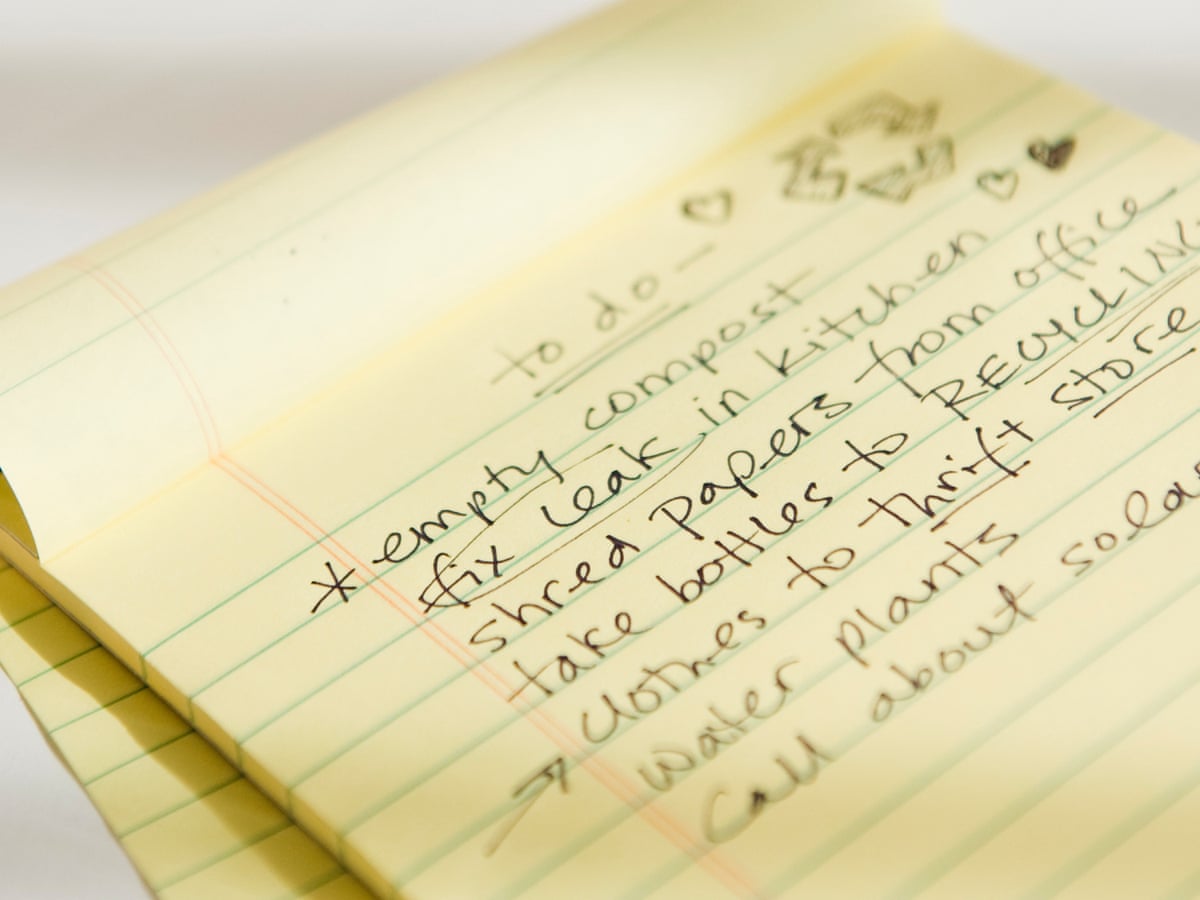 to do –
* empty compost
fix leak in kitchen
shred papers from office
take bottles to RECYCLING
clothes to thrift store
water plants
call about solar